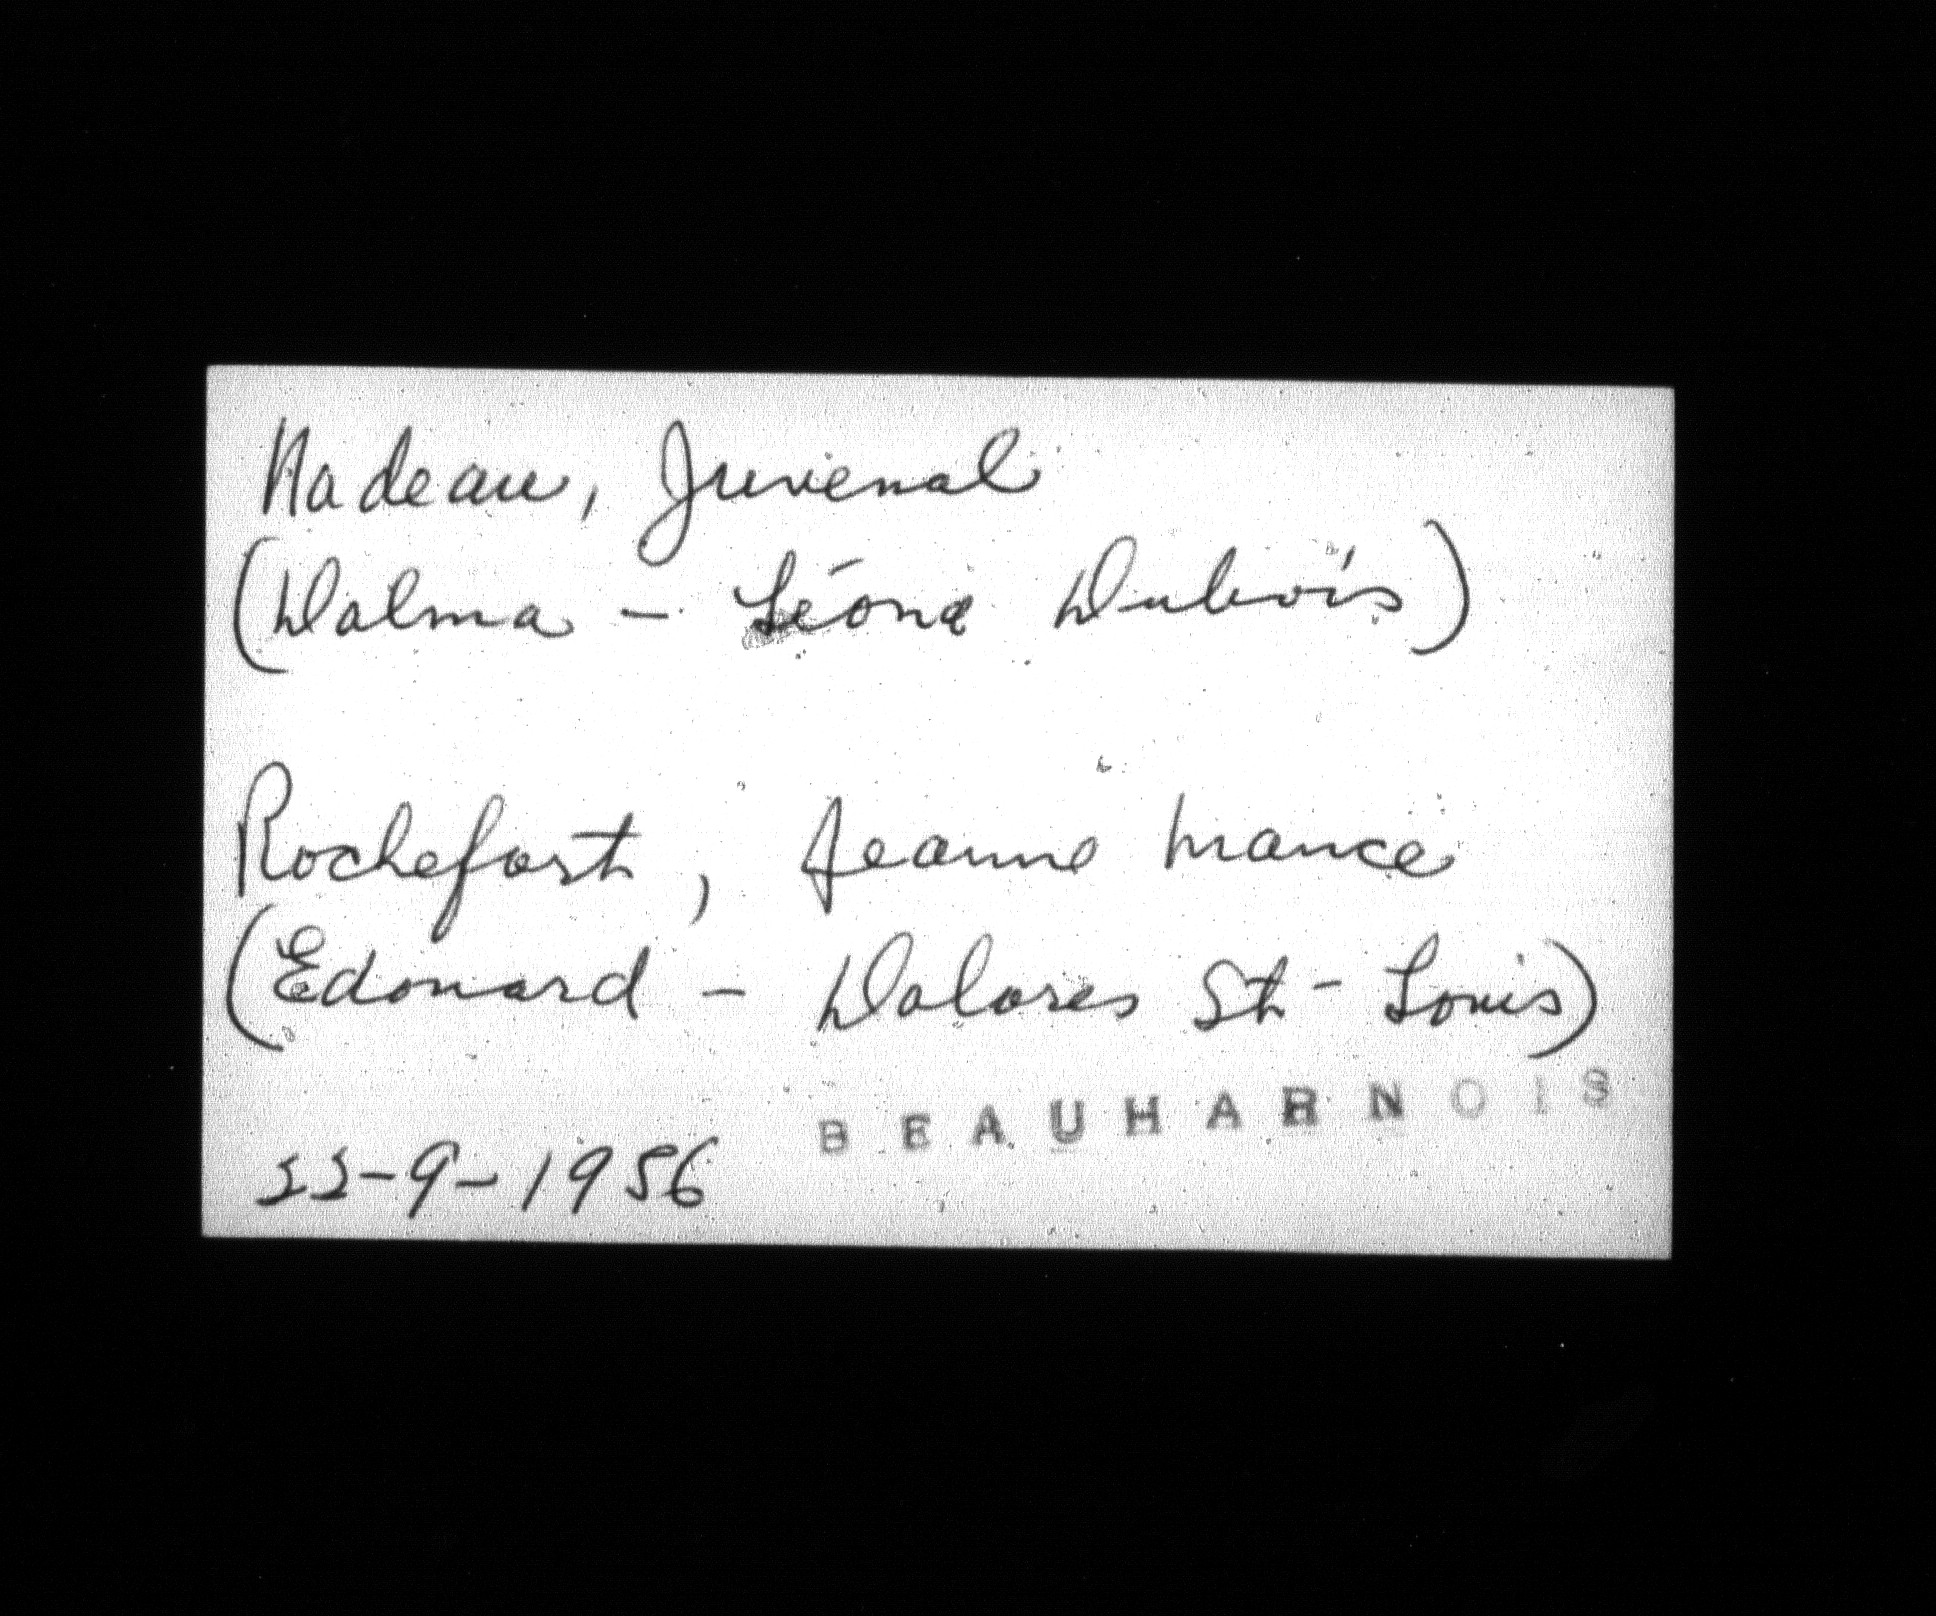 Nadeau, Juvenal
(Dalma - Léona Dubois)
Rochefort, Jeanne Mance
(Edouard - Dolores St-Louis)
BEAUHARNOIS
22-9-1956